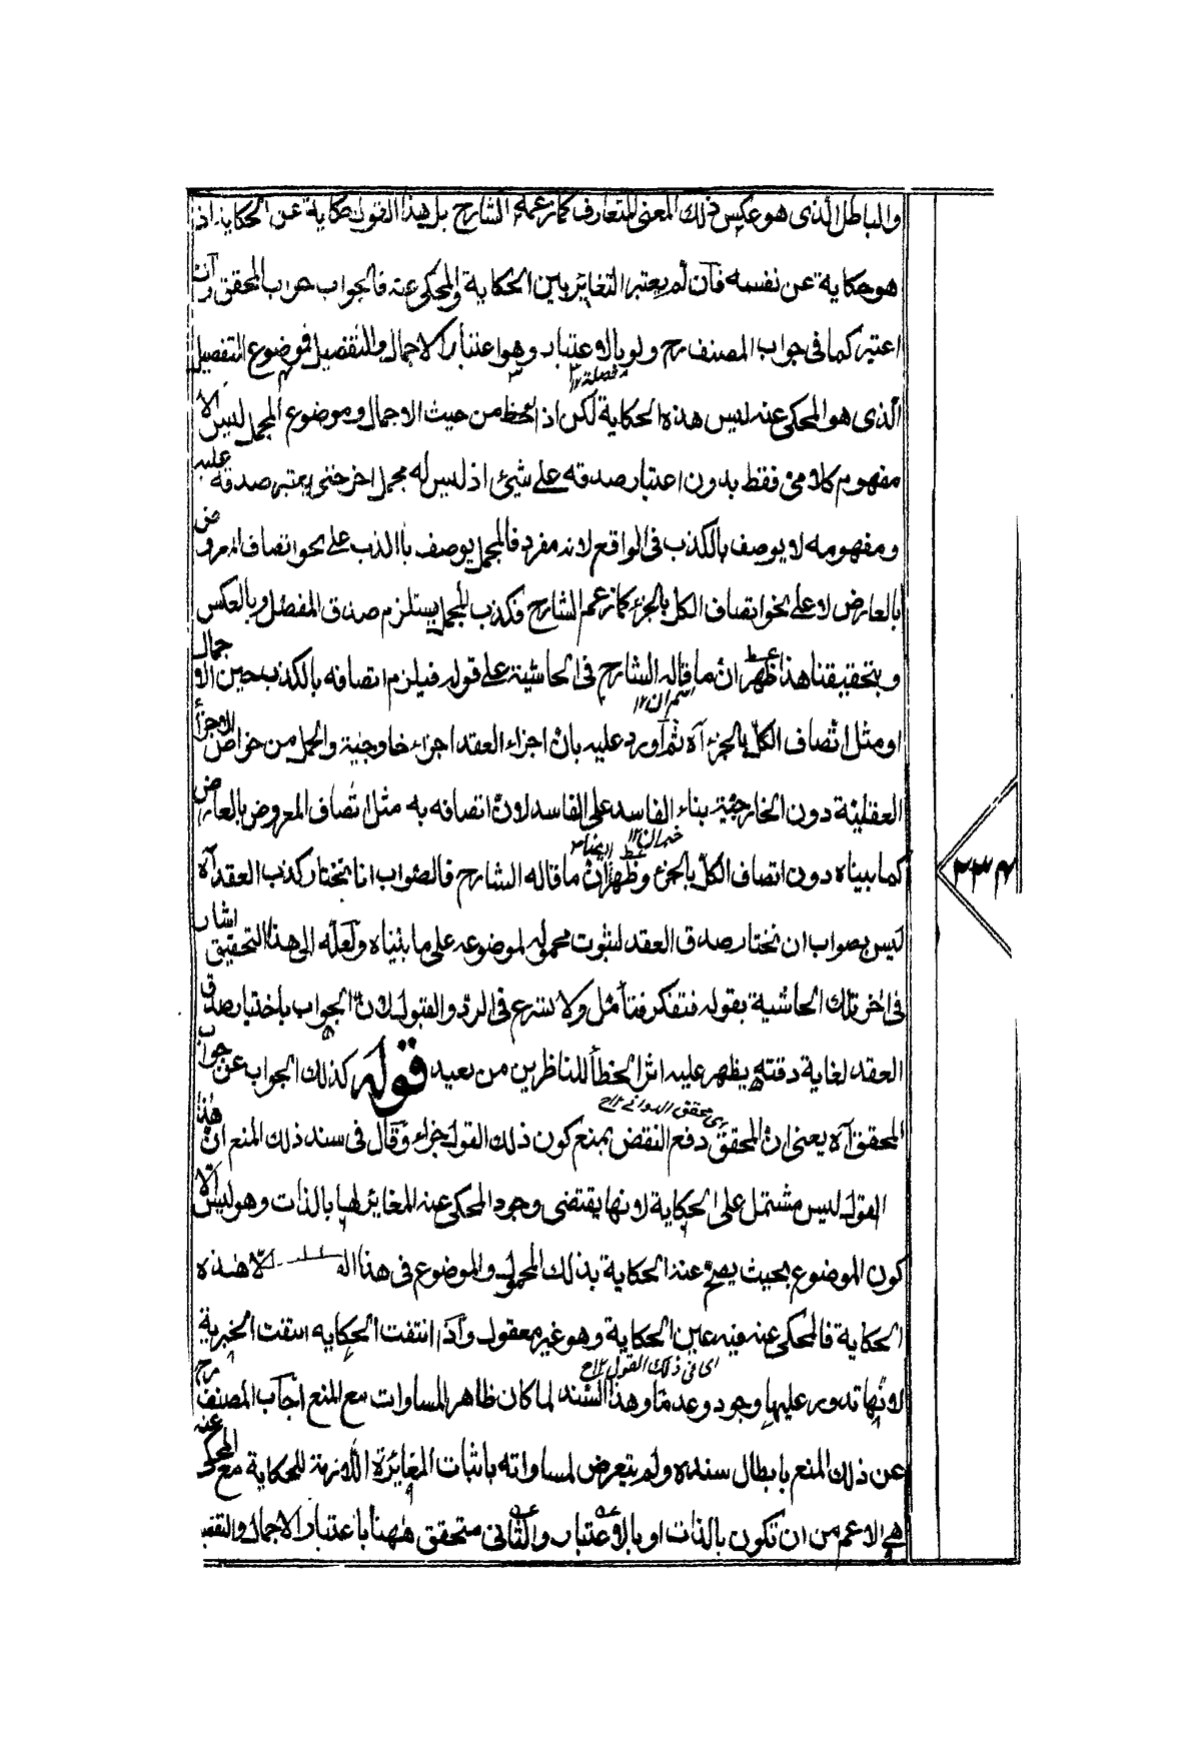 والباطل الذى هو عكس ذلك المعنى المتعارف كما زعمه الشارح بل هذا القول حكاية عن الحكاية اذ
هو حكاية عن نفسه فان لم يعتبر التغائر بين الحكاية والمحكى عنه فالجواب جواب المحقق وان
اعتبر كما فى جواب المصنف رح ولو بالاعتبار وهو اعتبار الاجمال والتفصيل فموضوع التفصيل
الذى هو المحكى عنه ليس هذه الحكاية لكن اذ لحظ من حيث الاجمال وموضوع المجمل ليس الا
مفهوم كلامى فقط بدون اعتبار صدقه على شيئ اذ ليس له مجمل اخر حتى يعتبر صدقه عليه
ومفهومه لا يوصف بالكذب فى الواقع لانه مفرد فالمجمل يوصف بالكذب على نحو اتصاف المعروض
بالعارض لا على نحو اتصاف الكل بالجزء كما زعم الشارح فكذب المجمل يستلزم صدق المفصل وبالعكس
وبتحقيقنا هذا ظهر ان ما قاله الشارح فى الحاشية على قوله فيلزم اتصافه بالكذب حين الاجمال
اسم ان ١٢
او مثل اتصاف الكل بالجزء آه ثم اورد عليه بان اجزاء العقد اجزاء خارجية والحمل من خواص الاجزاء
العقلية دون الخارجية بناء الفاسد على الفاسد لان اتصافه به مثل اتصاف المعروض بالعارض
خبر ان ١٢
كما بيناه دون اتصاف الكل بالجزء وظهر ان ما قاله الشارح فالصواب انا نختار كذب العقد آه
٢٣٤
ليس بصواب ان نختار صدق العقد لثبوت محموله لموضوعه على ما بيناه ولعله الى هذا التحقيق اشار
فى اخر تلك الحاشية بقوله فتفكر فتأمل ولا تسرع فى الرد والقبول لان الجواب باختيار صدق
العقد لغاية دقته يظهر عليه اثر الخطأ للناظرين من بعيد قوله كذلك الجواب عن جواب
اى محقق الدوانى ١٢ رح
المحقق آه يعنى ان المحقق دفع النقض بمنع كون ذلك القول خبرا وقال فى سند ذلك المنع ان هذا
القول ليس مشتمل على الحكاية لانها يقتضى وجود المحكى عنه المغائر لها بالذات وهو ليس الا
كون الموضوع بحيث يصح عنه الحكاية بذلك المحمول والموضوع فى هذا الا هذه
الحكاية فالمحكى عنه فيه عين الحكاية وهو غير معقول واذا انتفت الحكايه انتفت الخبرية
اى فى ذلك القول ١٢ رح
لانها تدور عليها وجودا وعدما وهذا السند لما كان ظاهر المساوات مع المنع اجاب المصنف رح
عن ذلك المنع بابطال سنده ولم يتعرض لمساواته باثبات المغائرة اللازمة للحكاية مع المحكى عنه
هى الاعم من ان تكون بالذات او بالاعتبار والثانى متحقق ههنا باعتبار الاجمال والتف